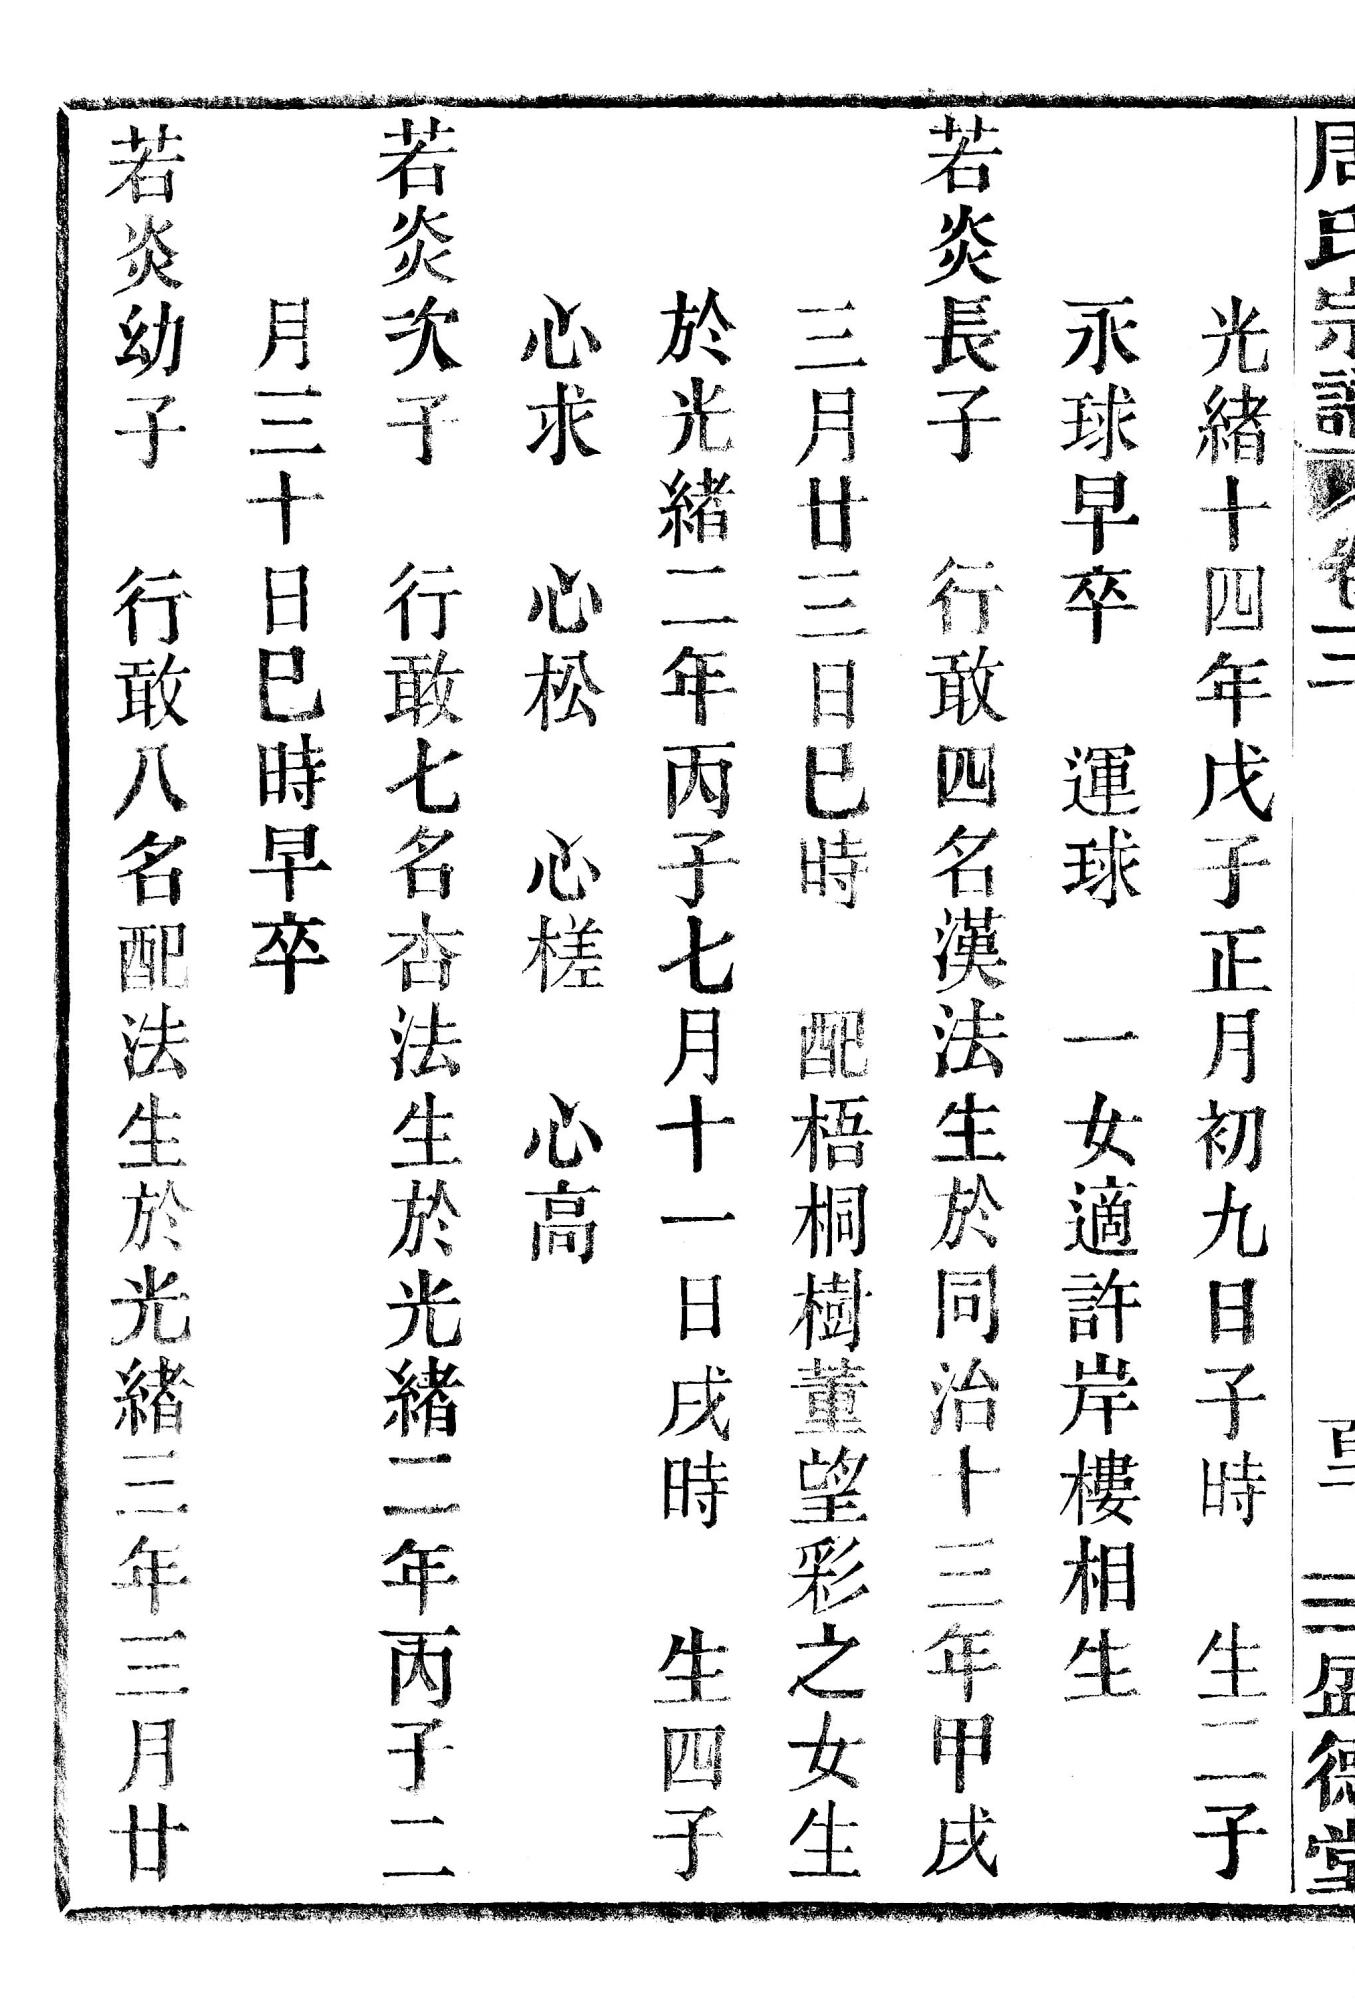 周氏宗譜 卷三 盛德堂
光緒十四年戊子正月初九日子時 生二子
永球早卒 運球 一女適許岸樓相生
若炎長子 行敢四名漢法生於同治十三年甲戌
三月廿三日巳時 配梧桐樹董望彩之女生
於光緒二年丙子七月十一日戌時 生四子
心求 心松 心槎 心高
若炎次子 行敢七名杏法生於光緒二年丙子二
月三十日巳時早卒
若炎幼子 行敢八名配法生於光緒三年三月廿